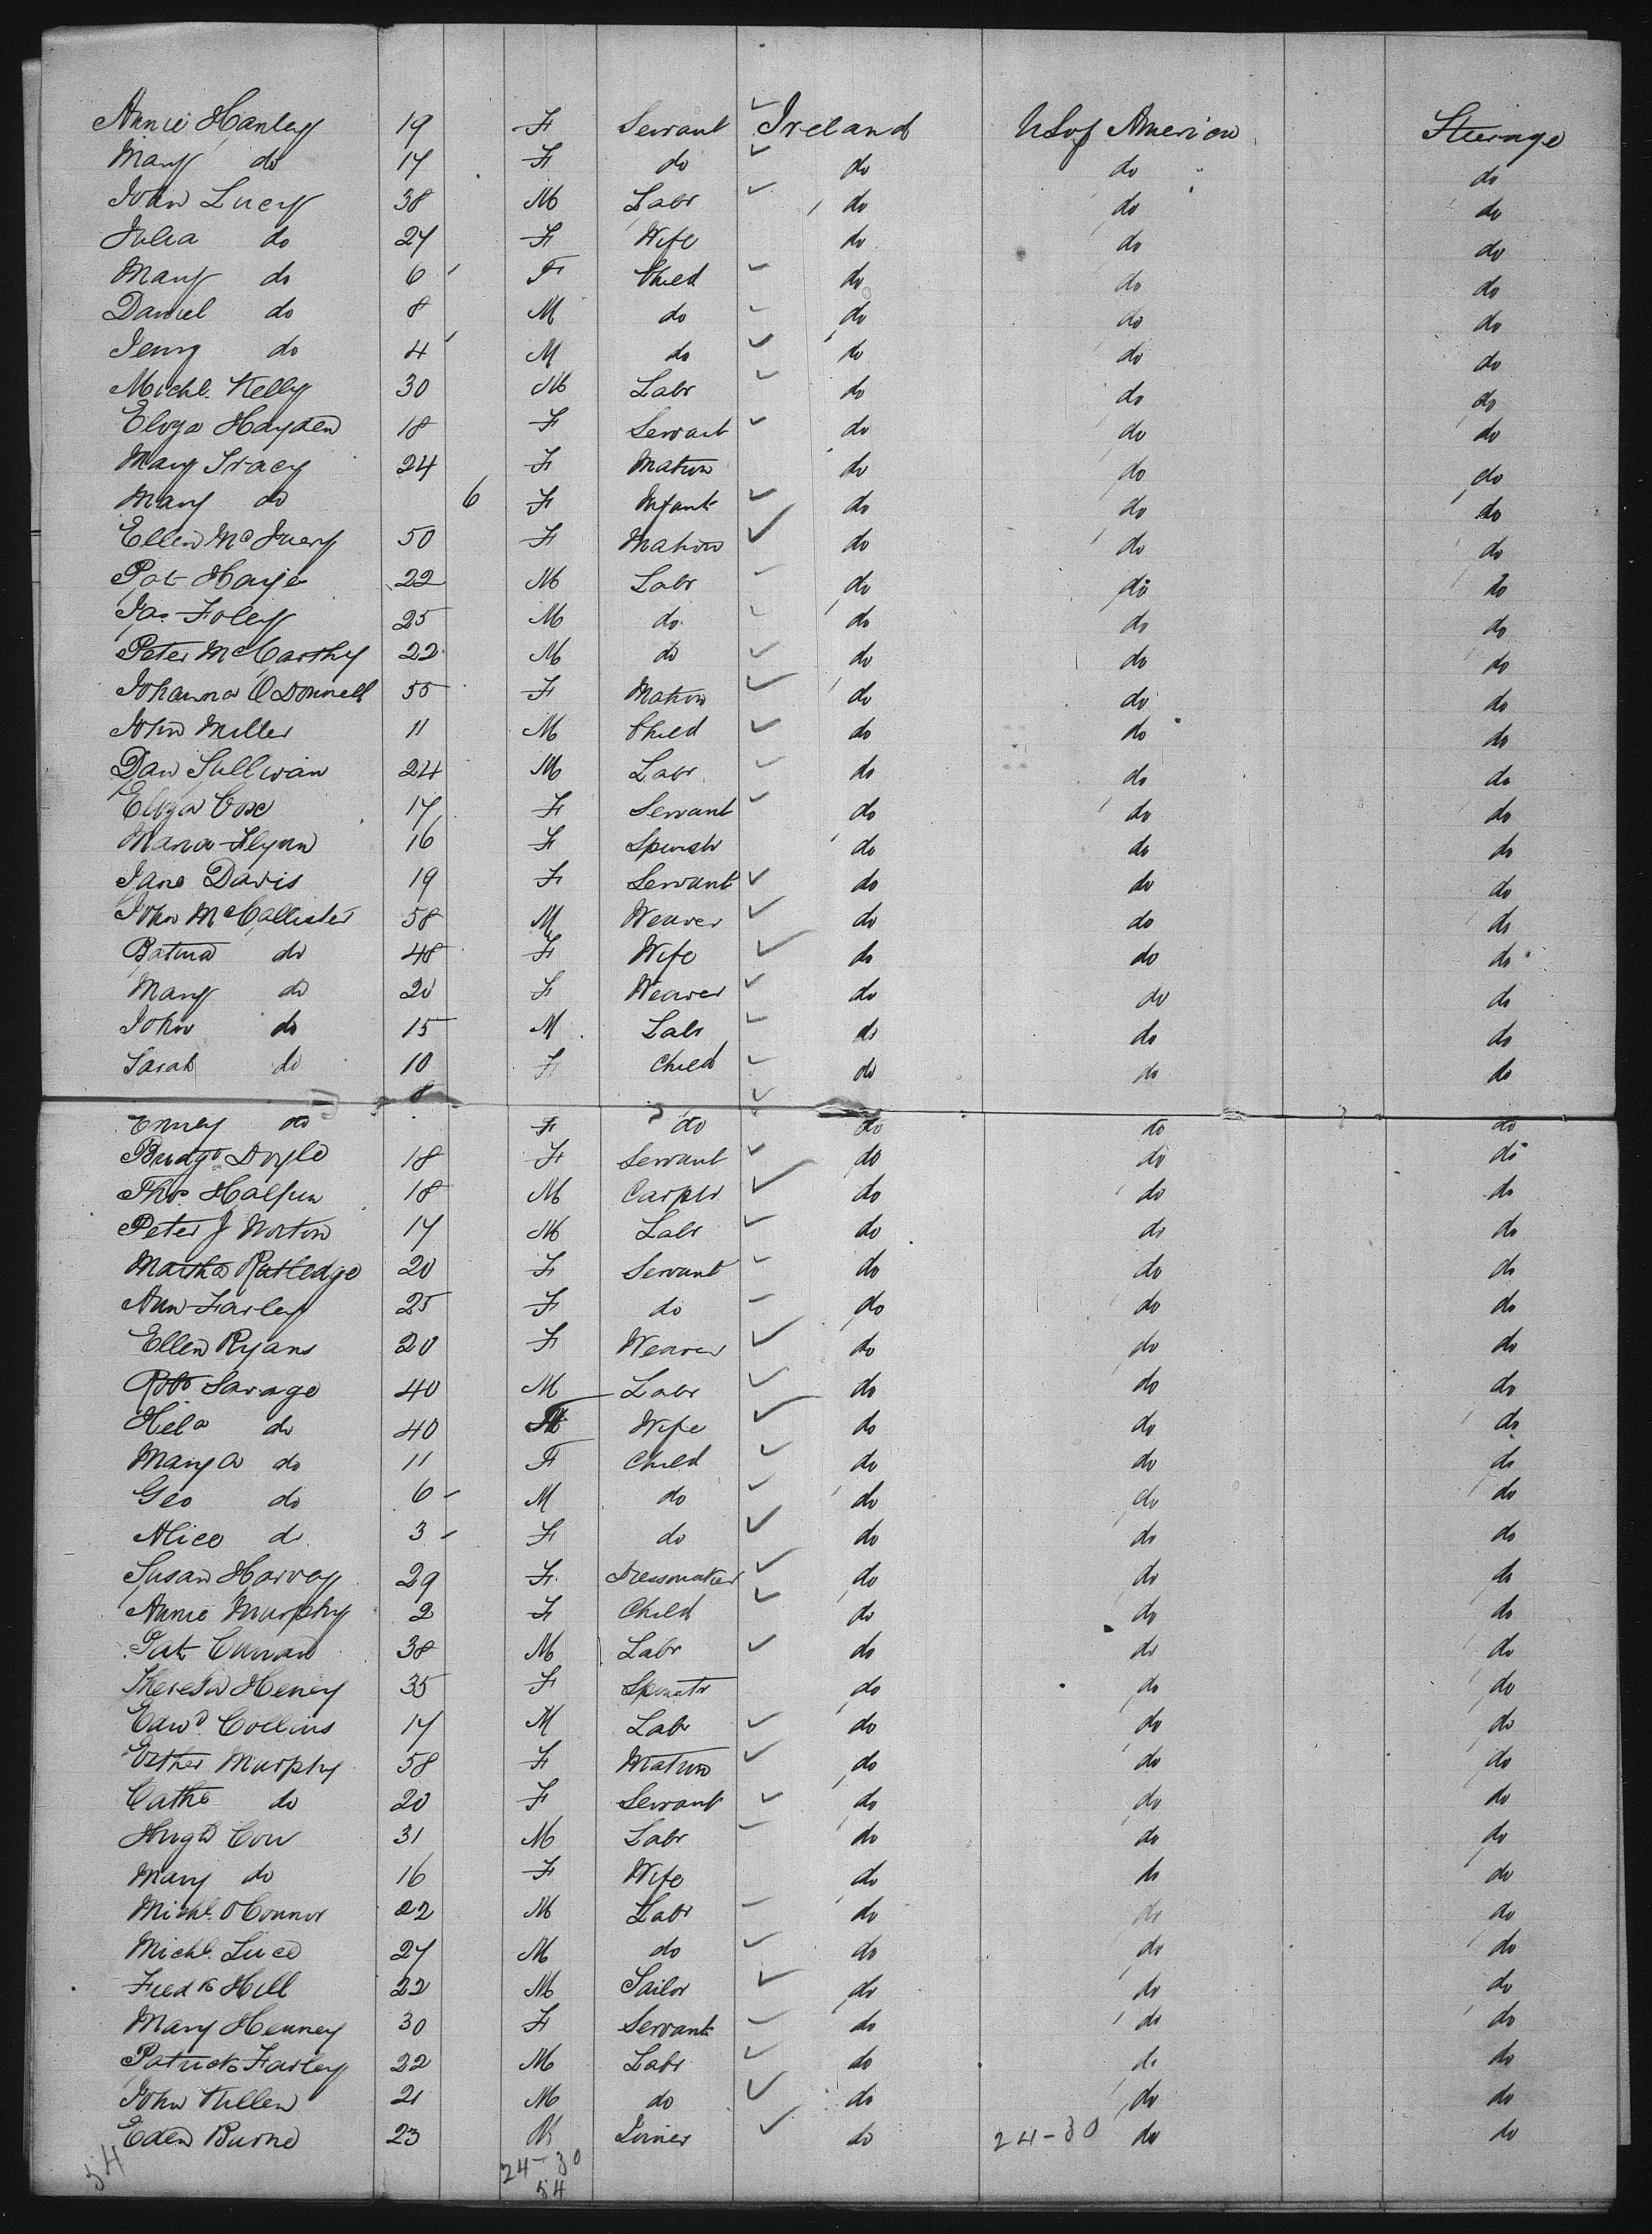 Annie Hanley 19 F Servant Ireland US of America Steerage
Mary do 17 F do do do do
John Lucy 38 M Labr do do do
Julia do 27 F Wife do do do
Mary do 6 F Child do do do
Daniel do 8 M do do do do
Jerry do 4 M do do do do
Michl. Kelly 30 M Labr do do do
Eliza Hayden 18 F Servant do do do
Mary Tracy 24 F Matron do do do
Mary do 6 F Infant do do do
Ellen 50 F Matron do do do
Pat 22 M Labr do do do
Jas Foley 25 M do do do do
Peter McCarthy 22 M do do do do
Johanna ODonnell 55 F Matron do do do
John Miller 11 M Child do do do
Dan Sullivan 24 M Labr do do do
Eliza Cox 17 F Servant do do do
Maria Flynn 16 F Spinstr do do do
Jane Davis 19 F Servant do do do
John McCallister 58 M Weaver do do do
do 48 F Wife do do do
Mary do 20 F Weaver do do do
John do 15 M Labr do do do
Sarah do 10 F Child do do do
do 8 F do do do do
Bridgt Doyle 18 F Servant do do do
Thos Halpin 18 M Carptr do do do
Peter J Norton 17 M Labr do do do
Martha Rutledge 20 F Servant do do do
Ann Farley 25 F do do do do
Ellen Ryans 20 F Weaver do do do
Robt Savage 40 M Labr do do do
do 40 F Wife do do do
Mary A do 11 F Child do do do
Geo do 6 M do do do do
Alice do 3 F do do do do
Susan Harvey 29 F Dressmaker do do do
Annie Murphy 2 F Child do do do
Pat Curran 38 M Labr do do do
Theresa Heney 35 F Spinstr do do do
Edwd. Collins 17 M Labr do do do
Esther Murphy 58 F Matron do do do
Cathe do 20 F Servant do do do
Hugh 31 M Labr do do do
Mary do 16 F Wife do do do
Michl. OConnor 22 M Labr do do do
Michl. Luce 27 M do do do do
Fredk Hill 22 M do do do
Mary Henney 30 F Servant do do do
Patrick Farley 22 M Labr do do do
John Killen 21 M do do do do
Eden Burne 23 M Joiner do 24-30 do do
54 24-30
54